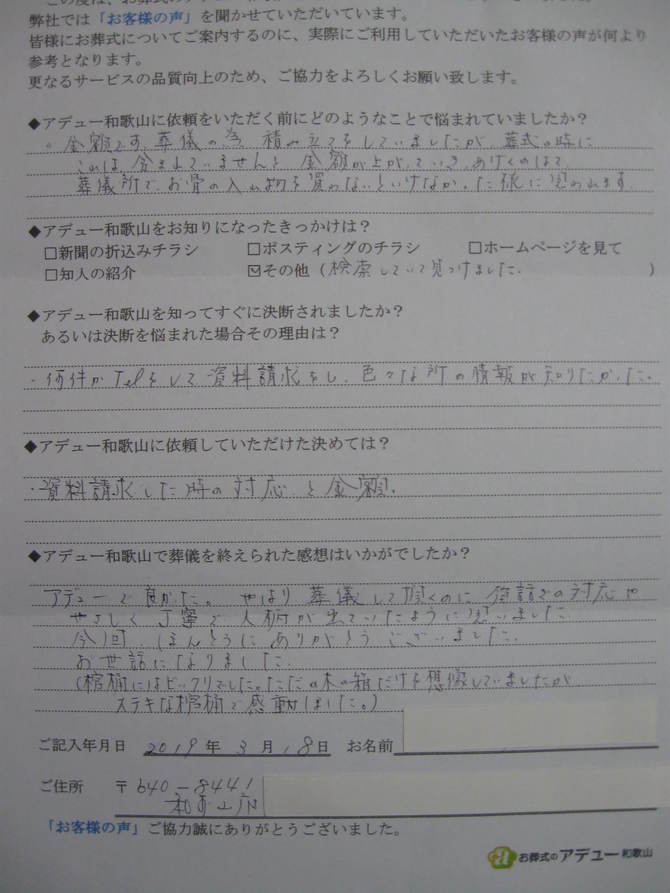 この度は、お葬式のアデュー
弊社では「お客様の声」を聞かせていただいています。
皆様にお葬式についてご案内するのに、実際にご利用していただいたお客様の声が何より
参考となります。
更なるサービスの品質向上のため、ご協力をよろしくお願い致します。
◆アデュー和歌山に依頼をいただく前にどのようなことで悩まれていましたか？
。金額です。葬儀の為、積み立てをしていましたが、葬式の時に
これは、含まれていませんと金額が上がっていき、あげくのはて、
葬儀所で、お骨の入れ物を買わないといけなかった様に思われます。
◆アデュー和歌山をお知りになったきっかけは？
□新聞の折込みチラシ □ポスティングのチラシ □ホームページを見て
□知人の紹介 ☑その他（検索していて見つけました。）
◆アデュー和歌山を知ってすぐに決断されましたか？
あるいは決断を悩まれた場合その理由は？
・何件かTelをして資料請求をし、色々な所の情報が知りたかった。
◆アデュー和歌山に依頼していただけた決めては？
・資料請求した時の対応と金額。
◆アデュー和歌山で葬儀を終えられた感想はいかがでしたか？
アデューで良かった。やはり葬儀して頂くのに 電話での対応や
やさしく丁寧で人柄が出ていたように思いました。
今回、ほんとうにありがとうございました。
お世話になりました。
（棺桶にはビックリでした。ただの木の箱だけを想像していましたが
ステキな棺桶で感動しました。）
ご記入年月日 2019年 3月 18日 お名前
ご住所 〒640-8441
和歌山市
「お客様の声」ご協力誠にありがとうございました。
お葬式のアデュー和歌山